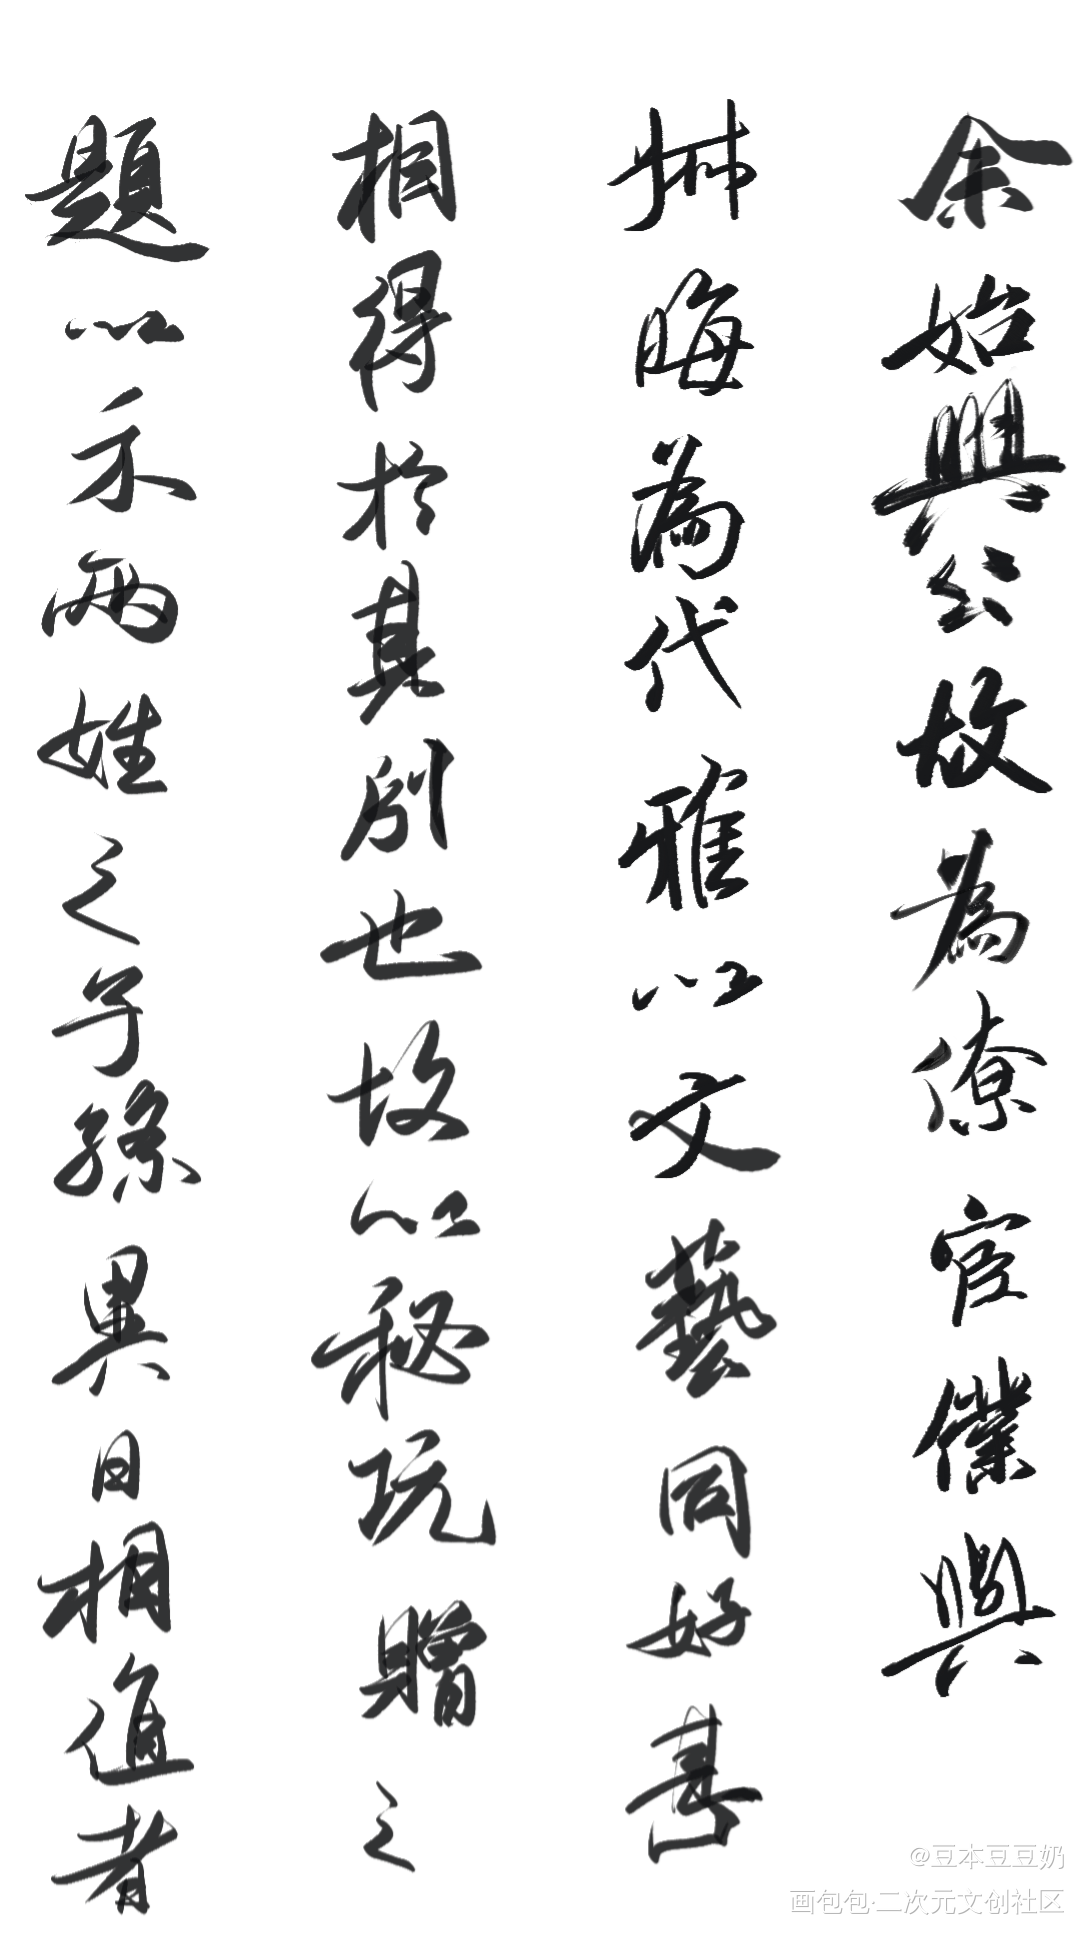 余始興公故為僚宦僕與
叔晦為代雅以文藝同好甚
相得於其別也故以秘玩贈之
題以示兩姓之子孫異日相值者
@豆本豆豆奶
画包包·二次元文创社区